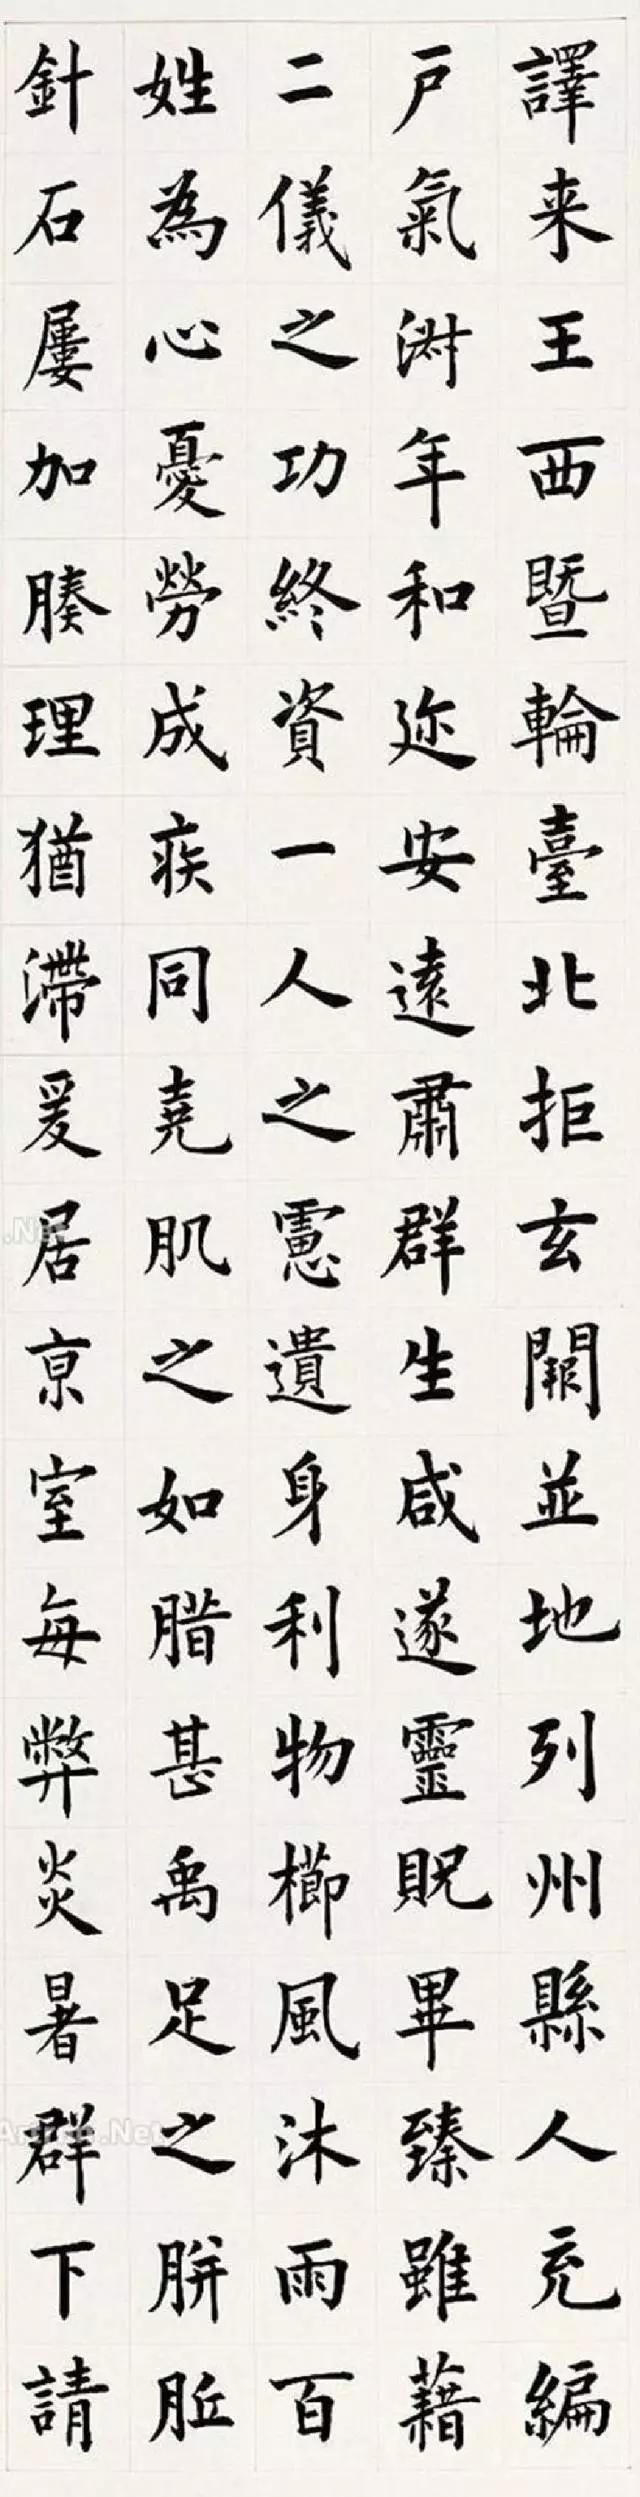 譯来王西暨輪臺北拒玄闕並地列州縣人充編
戸氣淋年和迩安遠肅群生咸遂靈貺畢臻雖藉
二儀之功終資一人之慮遺身利物櫛風沐雨百
姓為心憂勞成疾同堯肌之如腊甚禹足之胼胝
針石屢加腠理猶滯爰居京室每弊炎暑群下請